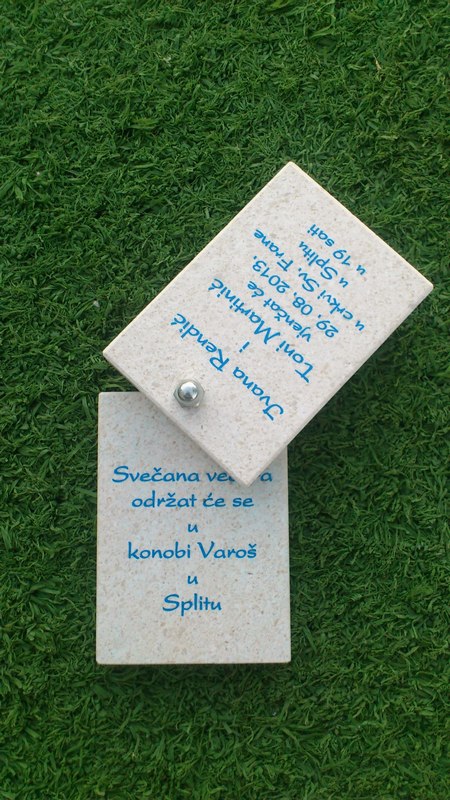 Ivana Rendić
i
Toni Martinić
vjenčat će
29. 08. 2013.
u crkvi Sv. Frane
u Splitu
u 19 sati
Svečana večera
održat će se
u
konobi Varoš
u
Splitu